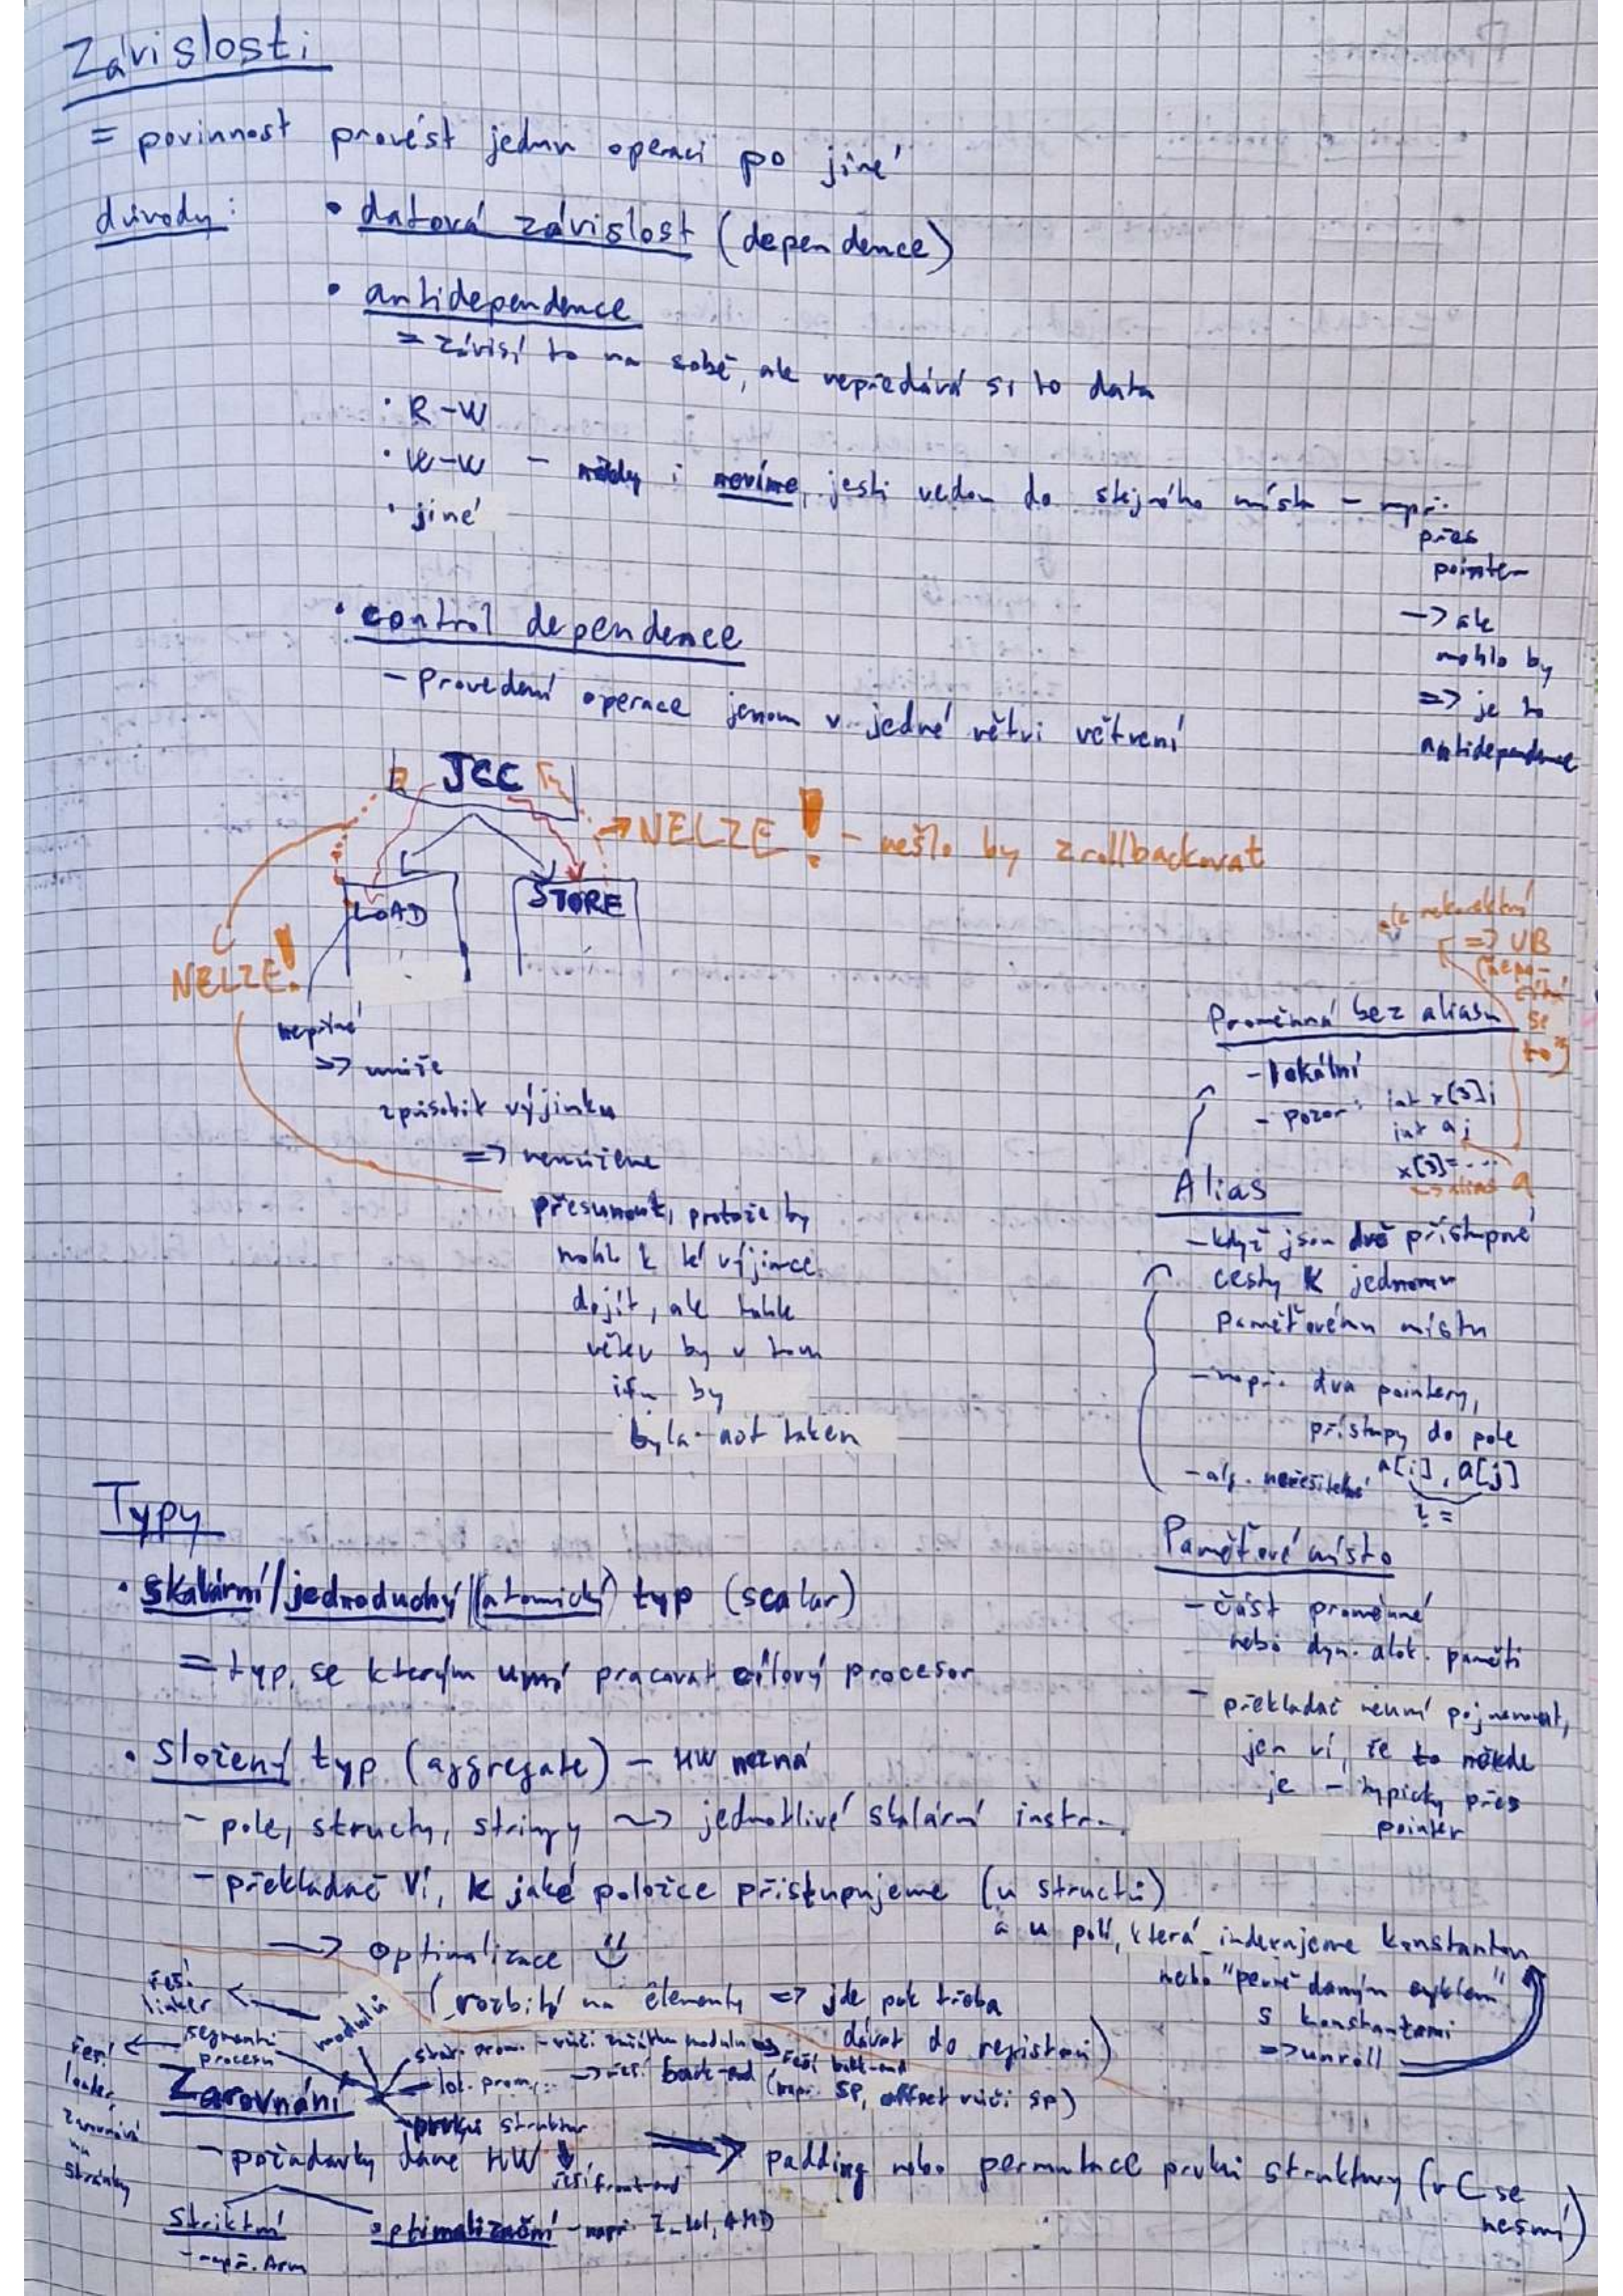 Závislosti
= povinnost provést jednu operaci po jiné
důvody:
• datová závislost (dependence)
• antidependence
= závisí to na sobě, ale nepředává si to data
• R-W
• W-W - někdy i nevíme, jestli vedou do stejného místa - např.
přes
pointer
-> ale
mohlo by
=> je to
antidependence
• jiné
• control dependence
- Provedení operace jenom v jedné větvi větvení
JCC
-> NELZE! - nešlo by zrollbackovat
LOAD
STORE
NELZE!
nepřímé
=> může
způsobit výjimku
=> nemůžeme
přesunout, protože by
mohlo k té výjimce
dojít, ale tahle
větev by v tom
ifu by
byla not taken
ale nekorektní
=> UB
se
to")
Proměnná bez aliasu
- lokální
- pozor: int x[3];
int a;
x[3]=...
-> alias a
Alias
- když jsou dvě přístupové
cesty k jednomu
paměťovému místu
- např. dva pointery,
přístupy do pole
a[i], a[j]
- alg. neřešitelné
Paměťové místo
- část proměnné
nebo dyn. alok. paměti
- překladač neumí pojmenovat,
jen ví, že to někde
je - typicky přes
pointer
Typy
• skalární/jednoduchý/(atomický) typ (scalar)
= typ, se kterým umí pracovat cílový procesor
• složený typ (aggregate) - HW nezná
- pole, structy, stringy ~> jednotlivé skalární instr.
- překladač ví, k jaké položce přistupujeme (u structů)
a u polí, která indexujeme konstantou
nebo "pevně daným cyklem"
s konstantami
=> unroll
-> optimalizace
(rozbití na elementy => jde pak třeba
dávat do registrů)
řeší
linker
modulů
segmentů
procesu
řeší
loader,
zarovnává
na
stránky
stat. prom. - vůči začátku modulu => řeší back-end
lok. prom. -> řeší back-end (např. SP, offset vůči SP)
Zarovnání
prvků struktur
řeší front-end
- požadavky dané HW
=> padding nebo permutace prvků struktury (v C se
nesmí)
striktní
- např. Arm
optimalizační - např. Intel, AMD